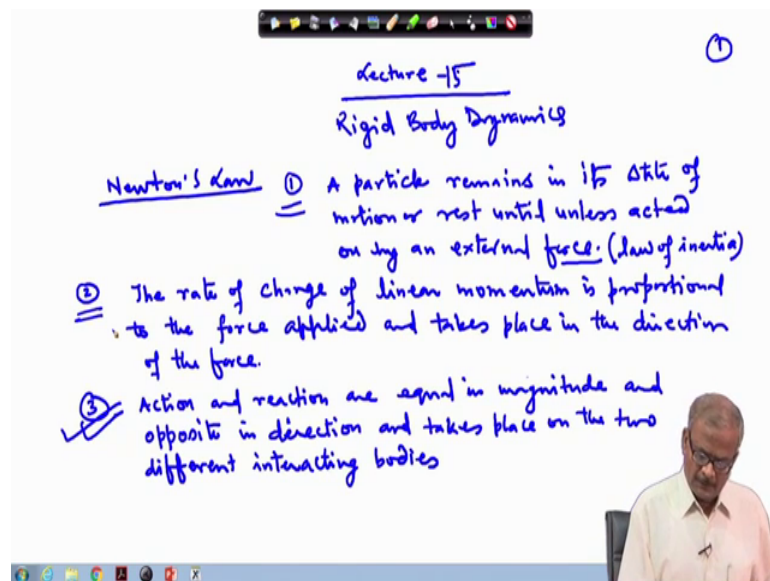 ①
Lecture-15
Rigid Body Dynamics
Newton's Law ① A particle remains in its state of
motion or rest until unless acted
on by an external force. (law of inertia)
② The rate of change of linear momentum is proportional
to the force applied and takes place in the direction
of the force.
③ Action and reaction are equal in magnitude and
opposite in direction and takes place on the two
different interacting bodies